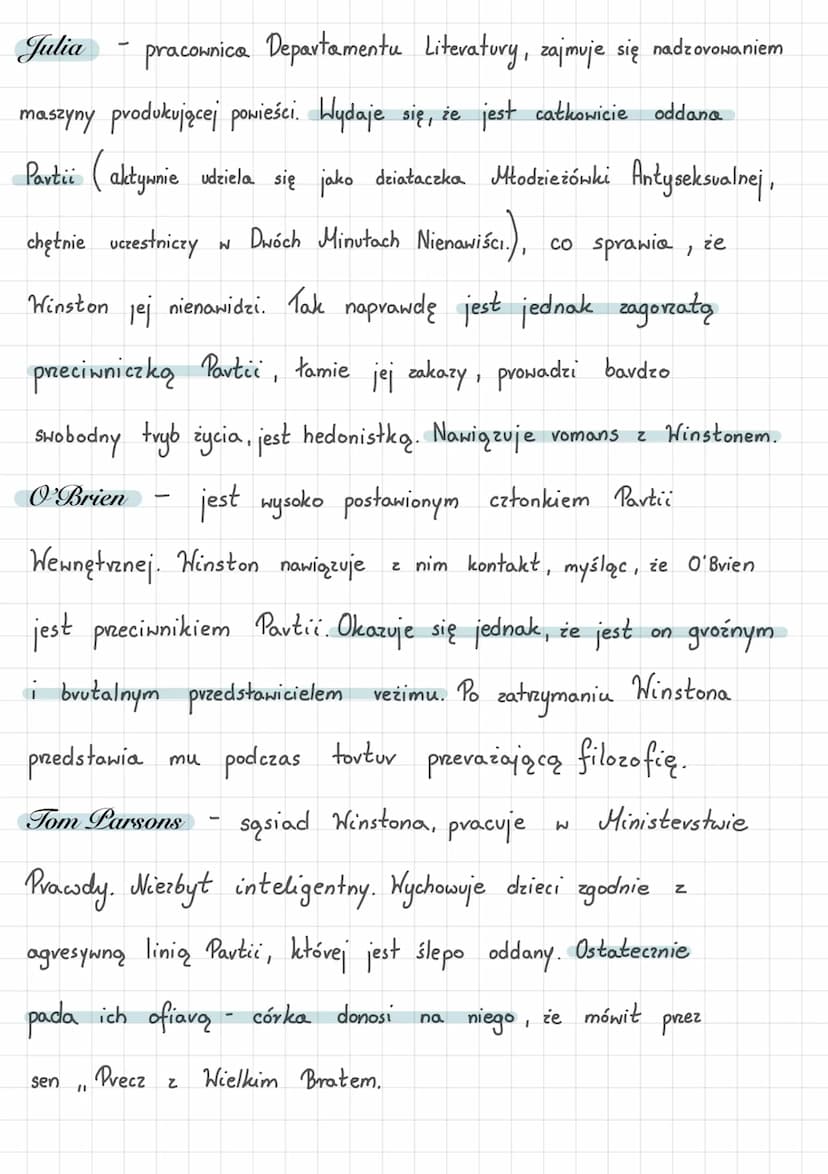 Julia - pracownica Departamentu Literatury, zajmuje się nadzorowaniem
maszyny produkującej powieści. Wydaje się, że jest całkowicie oddana
Partii (aktywnie udziela się jako działaczka Młodzieżówki Antyseksualnej,
chętnie uczestniczy w Dwóch Minutach Nienawiści.), co sprawia, że
Winston jej nienawidzi. Tak naprawdę jest jednak zagorzałą
przeciwniczką Partii, łamie jej zakazy, prowadzi bardzo
swobodny tryb życia, jest hedonistką. Nawiązuje romans z Winstonem.
O'Brien - jest wysoko postawionym członkiem Partii
Wewnętrznej. Winston nawiązuje z nim kontakt, myśląc, że O'Brien
jest przeciwnikiem Partii. Okazuje się jednak, że jest on groźnym
i brutalnym przedstawicielem reżimu. Po zatrzymaniu Winstona
przedstawia mu podczas tortur przerażającą filozofię.
Tom Parsons - sąsiad Winstona, pracuje w Ministerstwie
Prawdy. Niezbyt inteligentny. Wychowuje dzieci zgodnie z
agresywną linią Partii, której jest ślepo oddany. Ostatecznie
pada ich ofiarą - córka donosi na niego, że mówił przez
sen „Precz z Wielkim Bratem.